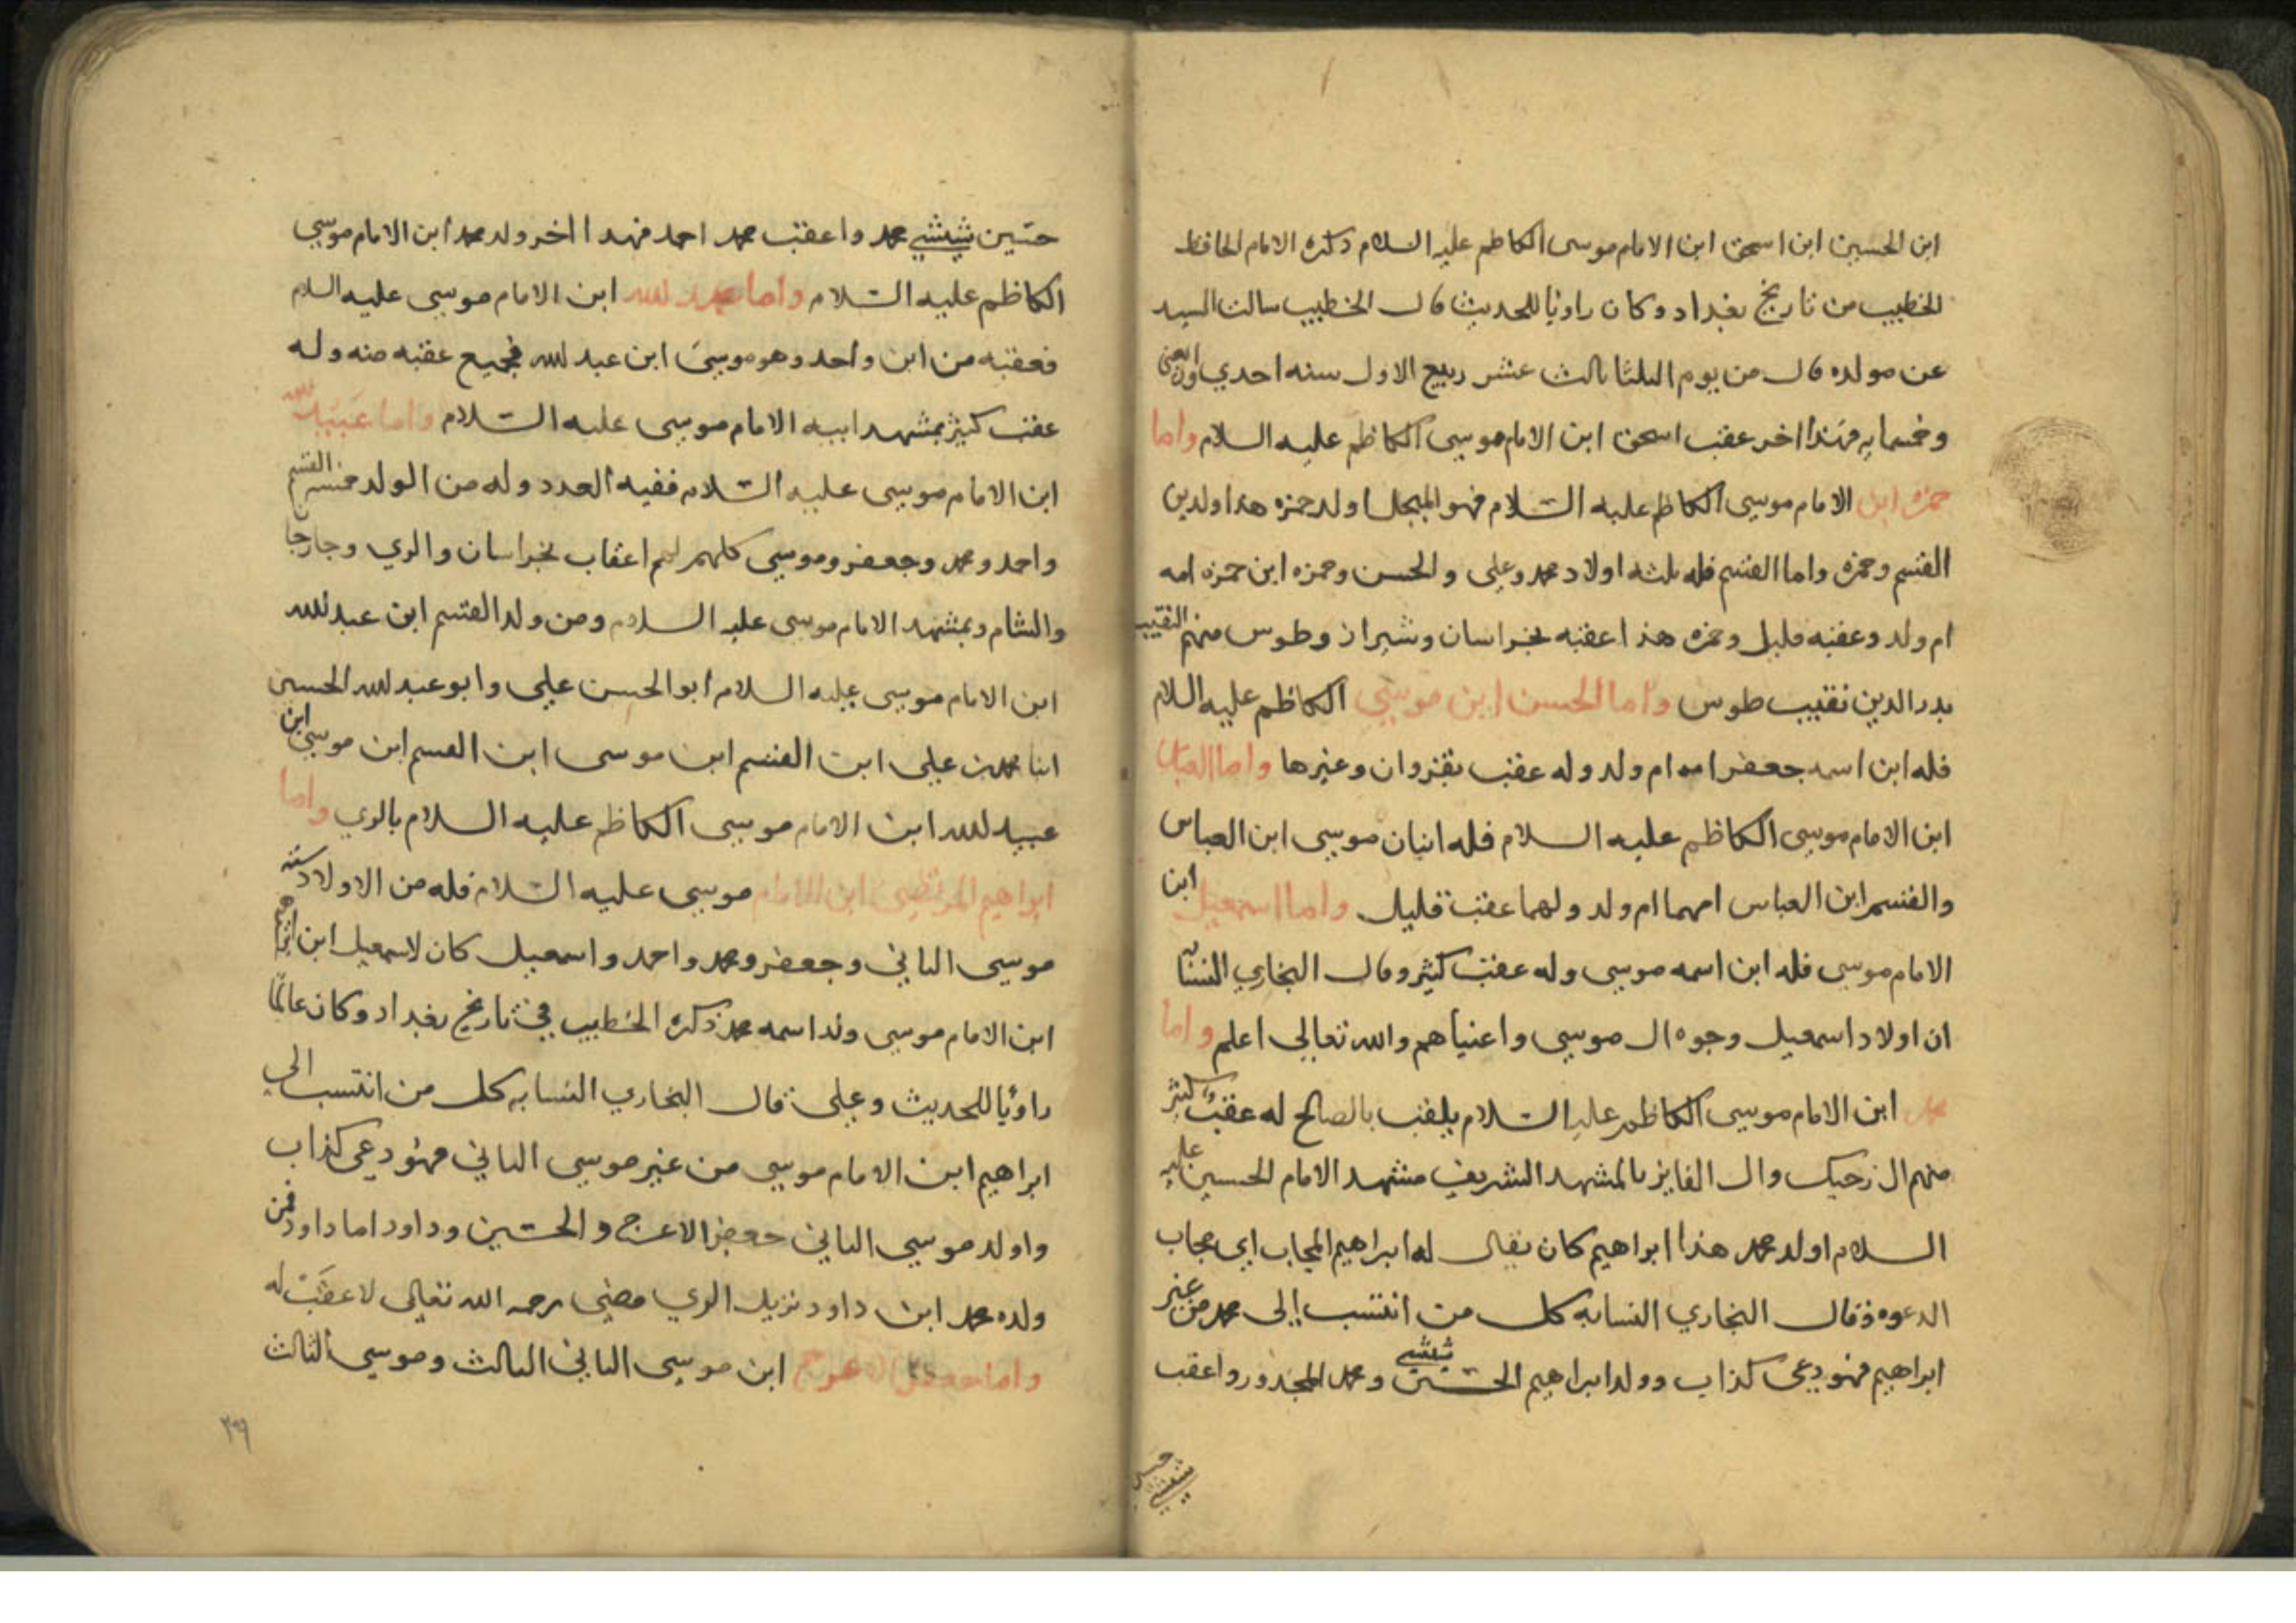 ابن الحسين ابن اسحق ابن الامام موسى الكاظم عليه السلام ذكره الامام الحافظ
الخطيب من تاريخ بغداد وكان راويا للحديث قال الخطيب سالت السيد
عن مولده قال من يوم الثلثا ثالث عشر ربيع الاول سنه احدي واربعين
وخمسمايه فهذا اخر عقب اسحق ابن الامام موسى الكاظم عليه السلام واما
حمزه ابن الامام موسي الكاظم عليه السلام فهو المبجل اولد حمزه هذا ولدين
القسم وحمزه واما القسم فله ثلثه اولاد محمد وعلي والحسن وحمزه ابن حمزه امه
ام ولد وعقبه قليل وحمزه هذا عقبه بخراسان وشيراز وطوس منهم النقيب
بدر الدين نقيب طوس واما الحسن ابن موسي الكاظم عليه السلام
فله ابن اسمه جعفر امه ام ولد وله عقب بقزوان وغيرها واما العباس
ابن الامام موسى الكاظم عليه السلام فله ابنان موسى ابن العباس
والقسم ابن العباس امهما ام ولد ولهما عقب قليل واما اسمعيل ابن
الامام موسى فله ابن اسمه موسى وله عقب كثير وقال البخاري النسابه
ان اولاد اسمعيل وجوه ال موسى واعنياهم والله تعالى اعلم واما
محمد ابن الامام موسى الكاظم عليه السلام يلقب بالصالح له عقب كثير
منهم ال زحيك وال الفايز بالمشهد الشريف مشهد الامام الحسين عليه
السلام اولد محمد هذا ابراهيم كان يقال له ابراهيم المجاب اي مجاب
الدعوه وقال البخاري النسابه كل من انتسب إلى محمد من غير
ابراهيم فهو دعي كذاب وولد ابراهيم الحسين شيشي ومحمد المجدور واعقب
حسين شيشي
حسين شيشي محمد واعقب محمد احمد فهذا اخر ولد محمد ابن الامام موسي
الكاظم عليه السلام واما عبد لله ابن الامام موسى عليه السلام
فعقبه من ابن واحد وهو موسى ابن عبد لله فجميع عقبه منه وله
عقب كثير بمشهد ابيه الامام موسى عليه السلام واما عبيد لله
ابن الامام موسى عليه السلام ففيه العدد وله من الولد خمسه القسم
واحمد ومحمد وجعفر وموسى كلهم لهم اعقاب بخراسان والري وجارجا
والشام وبمشهد الامام موسى عليه السلام ومن ولد القسم ابن عبد لله
ابن الامام موسى عليه السلام ابو الحسن علي وابو عبد لله الحسين
ابنا محمد بن علي ابن القسم ابن موسى ابن القسم ابن موسى ابن
عبيد لله ابن الامام موسى الكاظم عليه السلام بالري واما
ابراهيم المرتضي ابن الامام موسى عليه السلام فله من الاولاد سته
موسى الثاني وجعفر ومحمد واحمد واسمعيل كان لاسمعيل ابن ابراهيم
ابن الامام موسى ولد اسمه محمد ذكره الخطيب في تاريخ بغداد وكان عالمًا
راويًا للحديث وعلي قال البخاري النسابه كل من انتسب الي
ابراهيم ابن الامام موسى من غير موسى الثاني فهو دعي كذاب
واولد موسى الثاني جعفر الاعرج والحسين وداود اما داود فمن
ولده محمد ابن داود نزيل الري مضي رحمه الله تعالى لا عقب له
واما جعفر الاعرج ابن موسى الثاني الثالث وموسى الثالث
٣٩